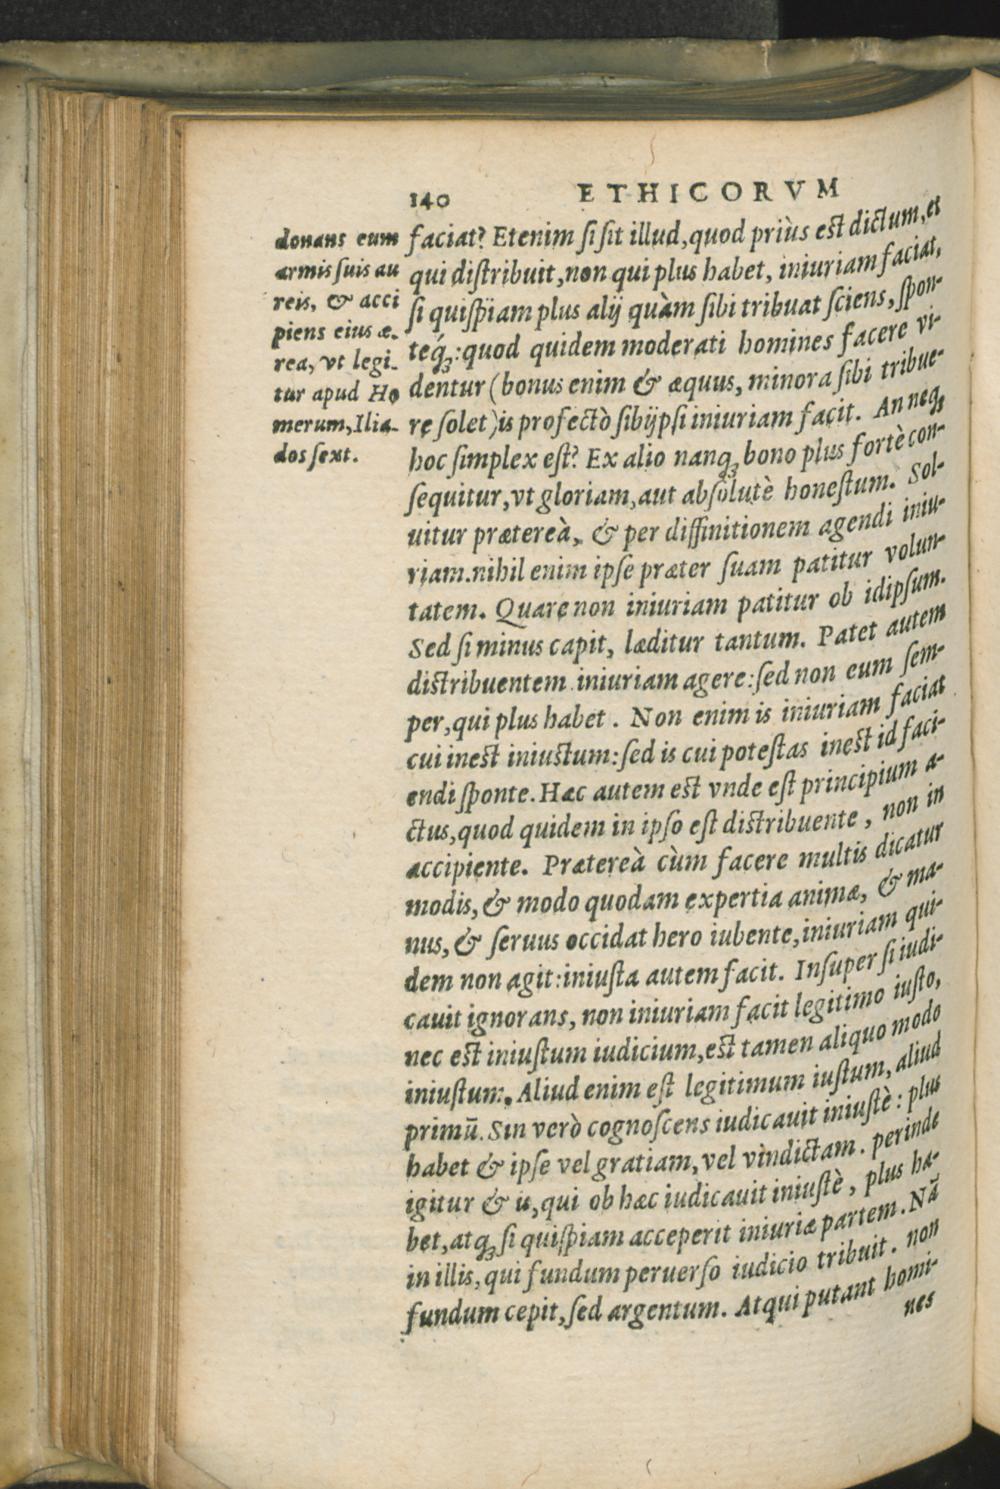 140 ETHICORVM
donans eum
armis suis au
reis, & acci
piens eius æ-
rea, vt legi-
tur apud Ho
merum, Ilia-
dos sext.
faciat? Etenim si sit illud, quod priùs est dictum, et
qui distribuit, non qui plus habet, iniuriam faciat,
si quispiam plus alij quàm sibi tribuat sciens, spon-
teq́;: quod quidem moderati homines facere vi-
dentur (bonus enim & æquus, minora sibi tribue-
re solet) is profectò sibijpsi iniuriam facit. An neq;
hoc simplex est? Ex alio nanq; bono plus fortè con-
sequitur, vt gloriam, aut absolutè honestum. Sol-
uitur prætereà, & per diffinitionem agendi iniu-
riam. nihil enim ipse præter suam patitur volun-
tatem. Quare non iniuriam patitur ob idipsum.
Sed si minus capit, læditur tantum. Patet autem
distribuentem iniuriam agere: sed non eum sem-
per, qui plus habet. Non enim is iniuriam faciat
cui inest iniustum: sed is cui potestas inest id faci-
endi sponte. Hæc autem est vnde est principium a-
ctus, quod quidem in ipso est distribuente, non in
accipiente. Prætereà cùm facere multis dicatur
modis, & modo quodam expertia animæ, & ma-
nus, & seruus occidat hero iubente, iniuriam qui-
dem non agit: iniusta autem facit. Insuper si iudi-
cauit ignorans, non iniuriam facit legitimo iusto,
nec est iniustum iudicium, est tamen aliquo modo
iniustum. Aliud enim est legitimum iustum, aliud
primū. Sin verò cognoscens iudicauit iniustè: plus
habet & ipse vel gratiam, vel vindictam. perinde
igitur & is, qui ob hæc iudicauit iniustè, plus ha-
bet, atq; si quispiam acceperit iniuriæ partem. Nā
in illis, qui fundum peruerso iudicio tribuit. non
fundum cepit, sed argentum. Atqui putant homi-
nes